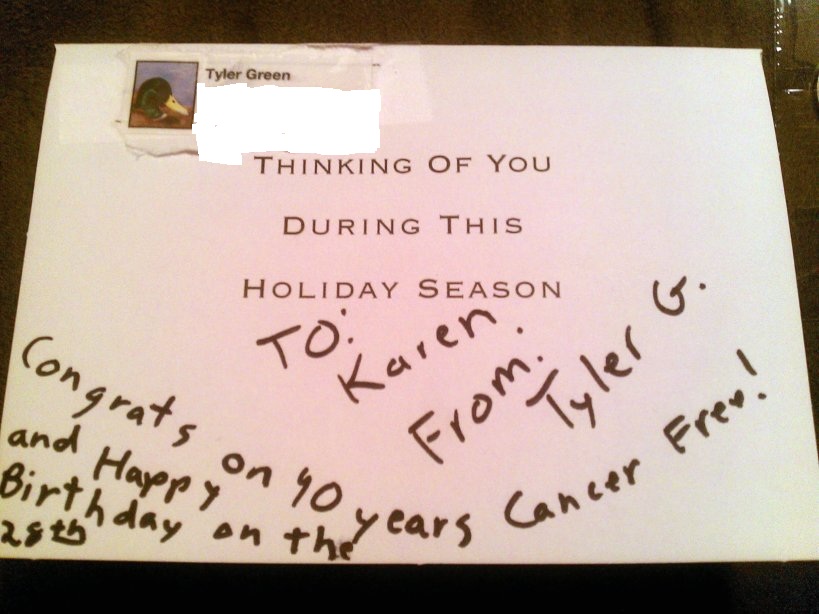 Tyler Green
THINKING OF YOU
DURING THIS
HOLIDAY SEASON
TO:
Karen.
From.
Tyler G.
Congrats on 40 years Cancer Free!
and Happy
Birthday on the
28th